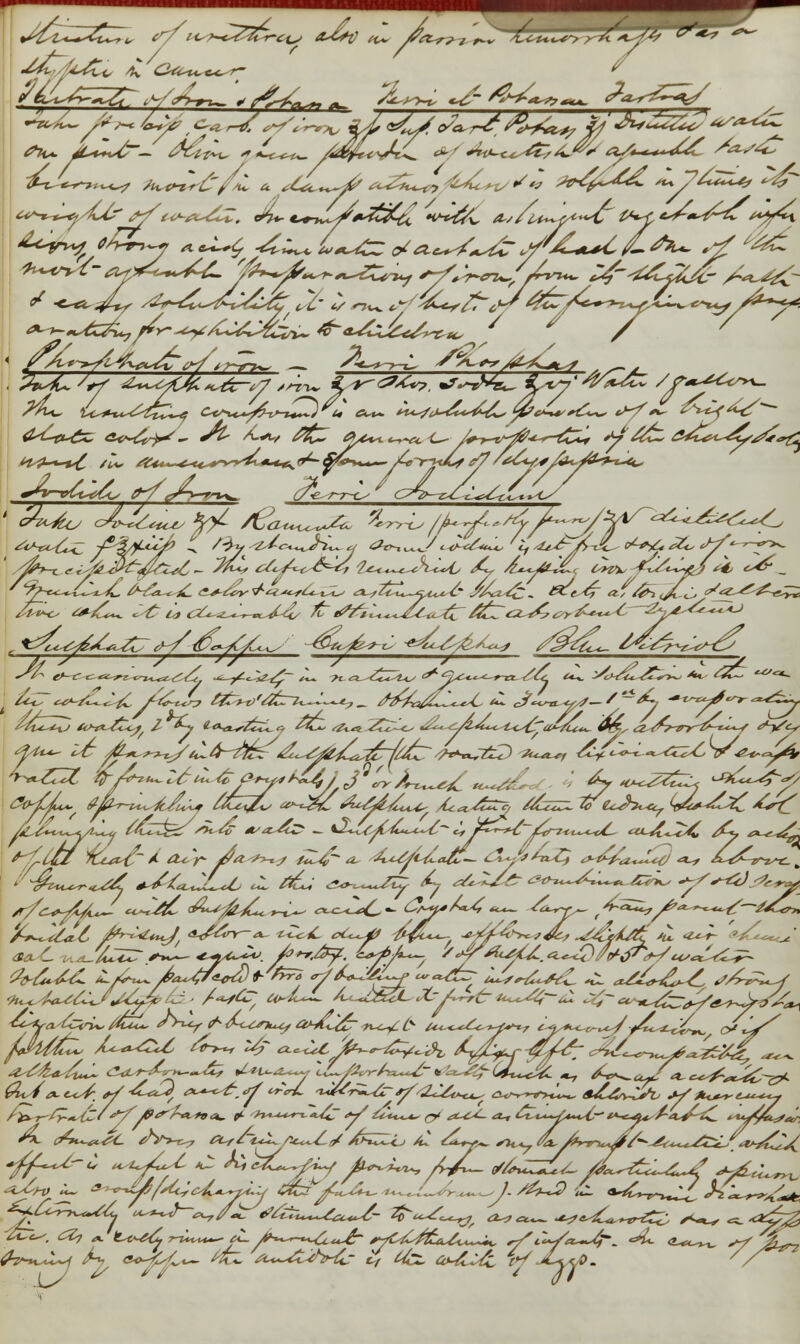 Stricture of urethra, also in passive hemorrhages & as a
styptic in cancer
Tartrate of Iron & Potassa Ferri et Potassae Tartras
Take precip. carb. of iron ℥ss Sup. Tart. Potass, ℥j Distilled water
one pint - Olive green powder of sweetish & agreeable taste
becomes moist in a damp atmosphere & is soluble in 7 times its
weight of water. Incompatible with astringent vegetable infu
sions, strong acids, lime water & acetate of lead - One of the
most agreeable preparations of iron, from its slight taste
& easy solubility, it is one of best of the ferruginous prep
arations for exhibition to children
Phosphate of iron - Ferri Phosphas
Take of sulphate of iron ℥v Phos. Soda ℥vj Water 1 gallon
The resulting compound is an insoluble powder of a bright
slate color - It has the general properties of the chalybeates
used in amenorrhoea & some forms of dyspepsia
Iodide of Iron Ferri Iodidum
Take Iodine Ramenta Ferri (perfectly pure) distilled
water - By standing some iodine is set free & oxide of iron
precipitated - This defect is remedied by keeping iron filings in it -
Greenish black color & austere astringent taste. Acts as tonic & altera
tive when it is desirable to stimulate the absorbent system
Sulphate of Copper Cupri Sulphas Blue Vitriol
It occasionally exists in nature & generally in solution in the wa
ter which flows thro' the mines - Obtained in 3 ways - 1st by evaporating
these waters, 2d by roasting the native sulphuret, when by absorbing oxy
gen it passes into the sulphate (the roasted mass lixiviated & evapo
rated to form it into crystals) 3d or French method is by wetting sheets of
copper, sprinkling them with sulphur, heating them to redness, & while hot
plunging them into water - Sulphuret is first formed which by action
of the heat & air passes into a sulphate - Crystals obtained as above.
Generally obtained in this country by direct combination of old scraps
of copper with sulphuric acid - Crystals are large, transparent rhom
boidal prisms, color a rich deep blue, effloresces slightly in air chemi
cal nature one equiv. protox. copper, 1 of sulph. acid & 5 of water
Soluble in four parts cold & two of boiling water, insoluble in alcohol, strong
metallic styptic taste, when heated it first melts in its water of crystal
lization then dries & becomes white next undergoes igneous fusion, & if
farther heated loses its acid protoxide being left. Incompatibles, are
alkaline carbonates & many important salts such as borax acetate &
sub acet. of lead, acet. of iron nitrate of silver, corrosive chloride of mercury
tartrate of potassa & muriate of lime & all astringent vegetable infusions
In small doses astringent & tonic in large ones, a prompt emetic, which
effect is useful in discharging poisons from stomach particularly opium
also in croup (discharging the false membrane). Used in chronic diarrhoea
Externally used as a stimulant to ulcers, as an escharotic & as a styp
tic. As a collyrium in purulent ophthalmia of infants. In case of poi
soning by copper the antidote is the white of eggs.